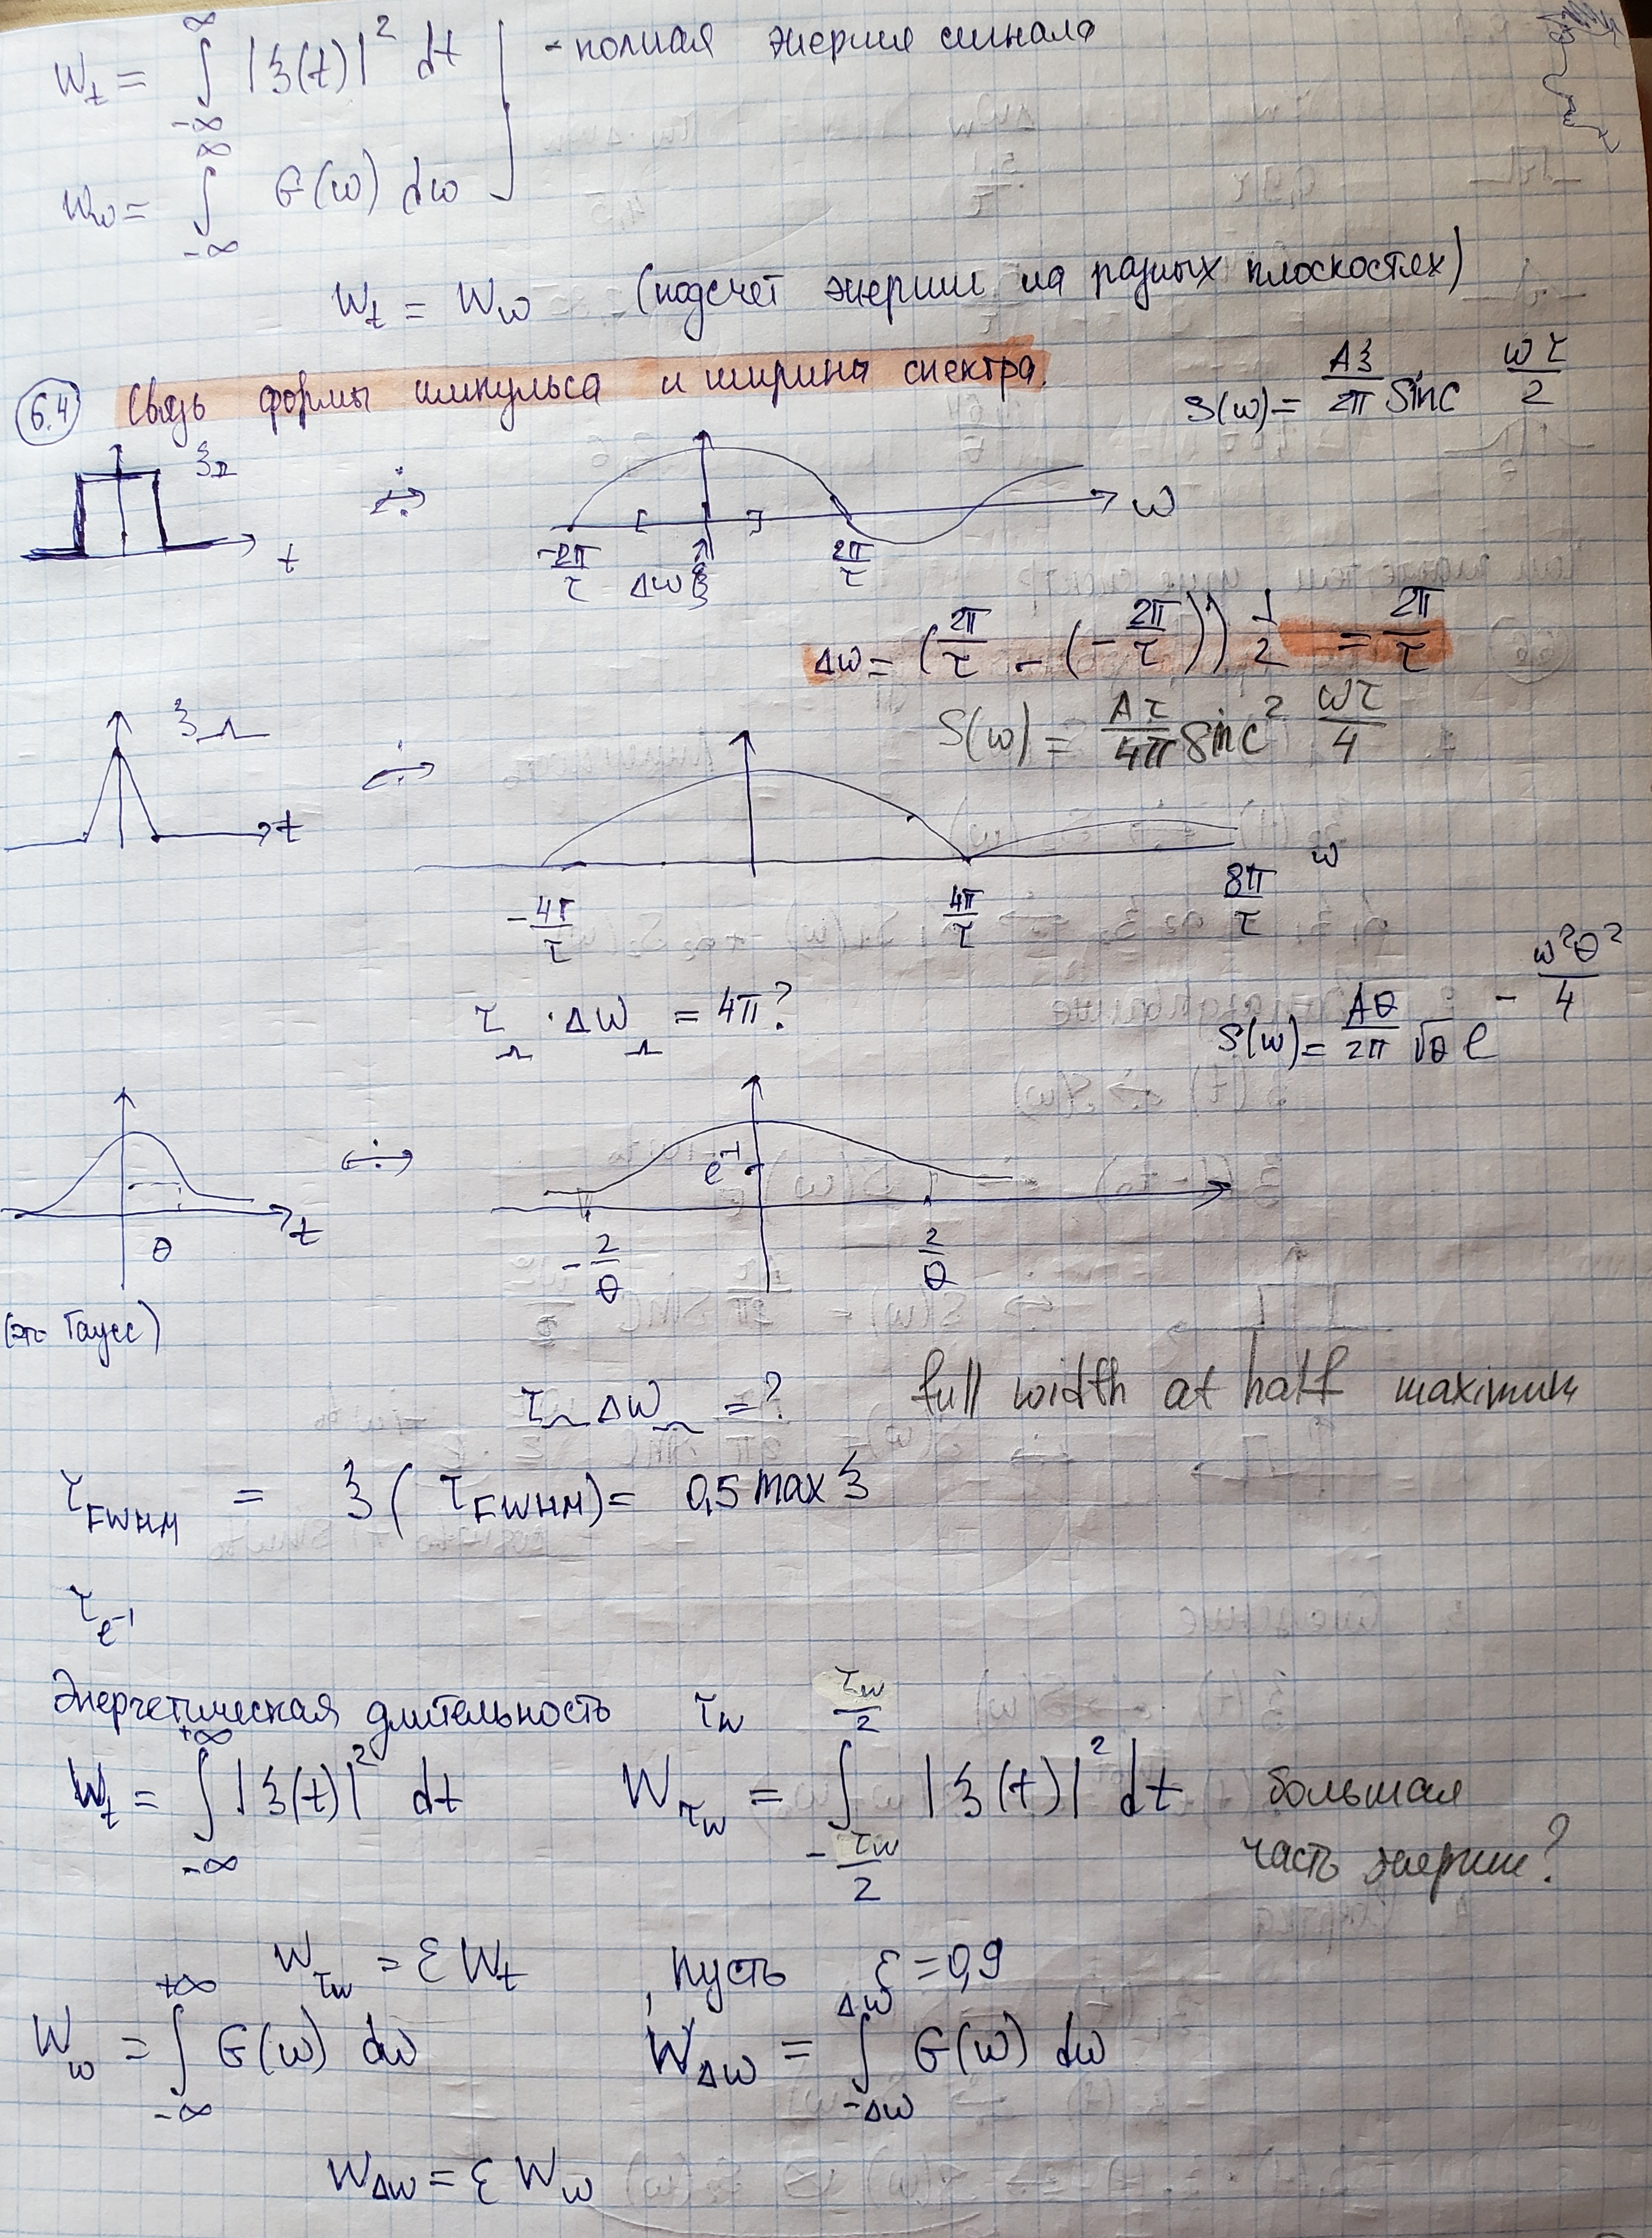 W_t = ∫_{-∞}^{∞} |ξ(t)|² dt - полная энергия сигнала
W_ω = ∫_{-∞}^{∞} G(ω) dω
W_t = W_ω (подсчёт энергии на разных плоскостях)
6.4 Связь формы импульса и ширины спектра.
S(ω) = Aξ/2π sinc ωτ/2
ξ_П
t
÷
ω
-2π/τ Δω 2π/τ
Δω = (2π/τ - (-2π/τ)) 1/2 = 2π/τ
ξ_Λ
S(ω) = Aτ/4π sinc² ωτ/4
t
÷
ω
-4π/τ 4π/τ 8π/τ
τ_Λ · Δω_Λ = 4π?
S(ω) = Aθ/2π √θ e^{-ω²θ²/4}
e^{-1}
θ t
÷
-2/θ 2/θ
(это Гаусс)
τ Δω = ? full width at half maximum
τ_FWHM = ξ(τ_FWHM) = 0,5 max ξ
τ_{e^{-1}}
Энергетическая длительность τ_W
W_t = ∫_{-∞}^{+∞} |ξ(t)|² dt W_{τ_W} = ∫_{-τ_W/2}^{τ_W/2} |ξ(t)|² dt большая
часть энергии?
W_{τ_W} = ε W_t , пусть ε = 0,9
W_ω = ∫_{-∞}^{+∞} G(ω) dω W_{Δω} = ∫_{-Δω}^{Δω} G(ω) dω
W_{Δω} = ε W_ω